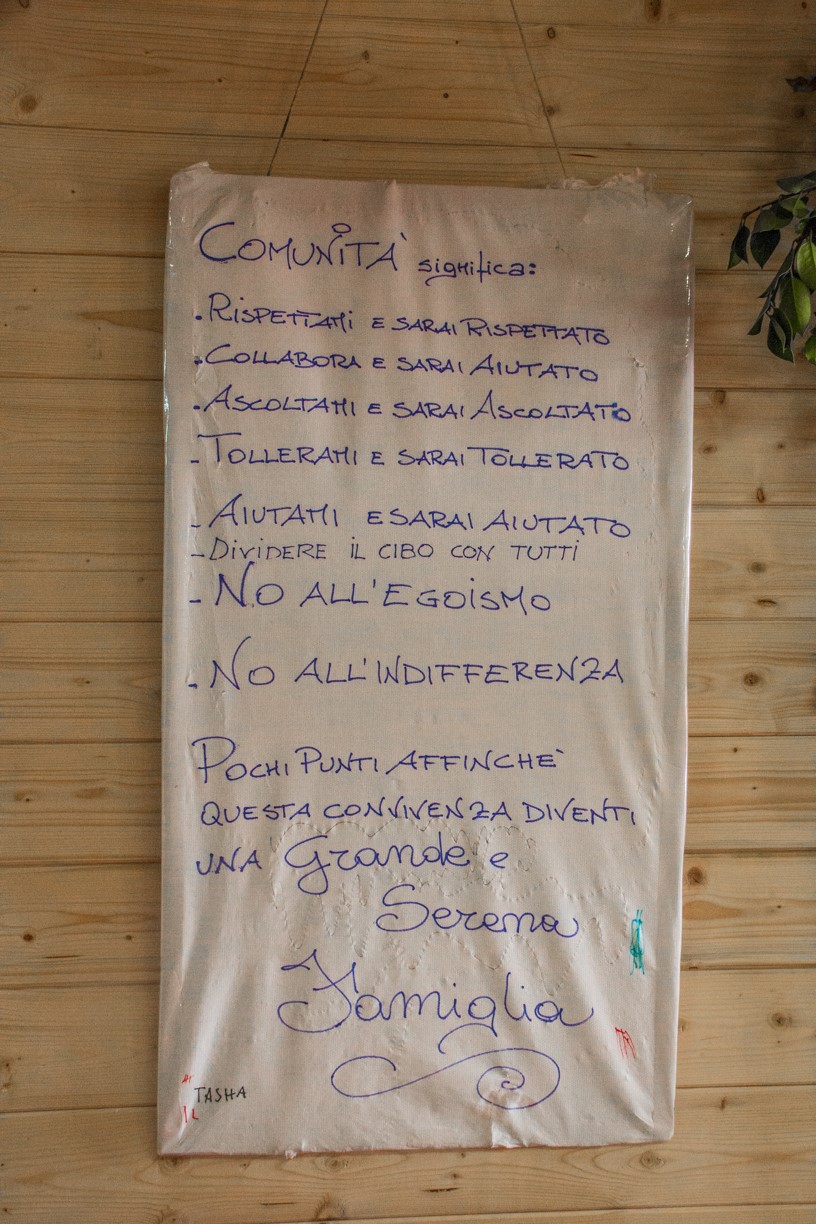 COMUNITÀ significa:
. RISPETTAMI E SARAI RISPETTATO
. COLLABORA E SARAI AIUTATO
. ASCOLTAMI E SARAI ASCOLTATO
- TOLLERAMI E SARAI TOLLERATO
- AIUTAMI E SARAI AIUTATO
- DIVIDERE IL CIBO CON TUTTI
- NO ALL'EGOISMO
- NO ALL'INDIFFERENZA
POCHI PUNTI AFFINCHÈ
QUESTA CONVIVENZA DIVENTI
UNA Grande e
Serena
Famiglia
TASHA